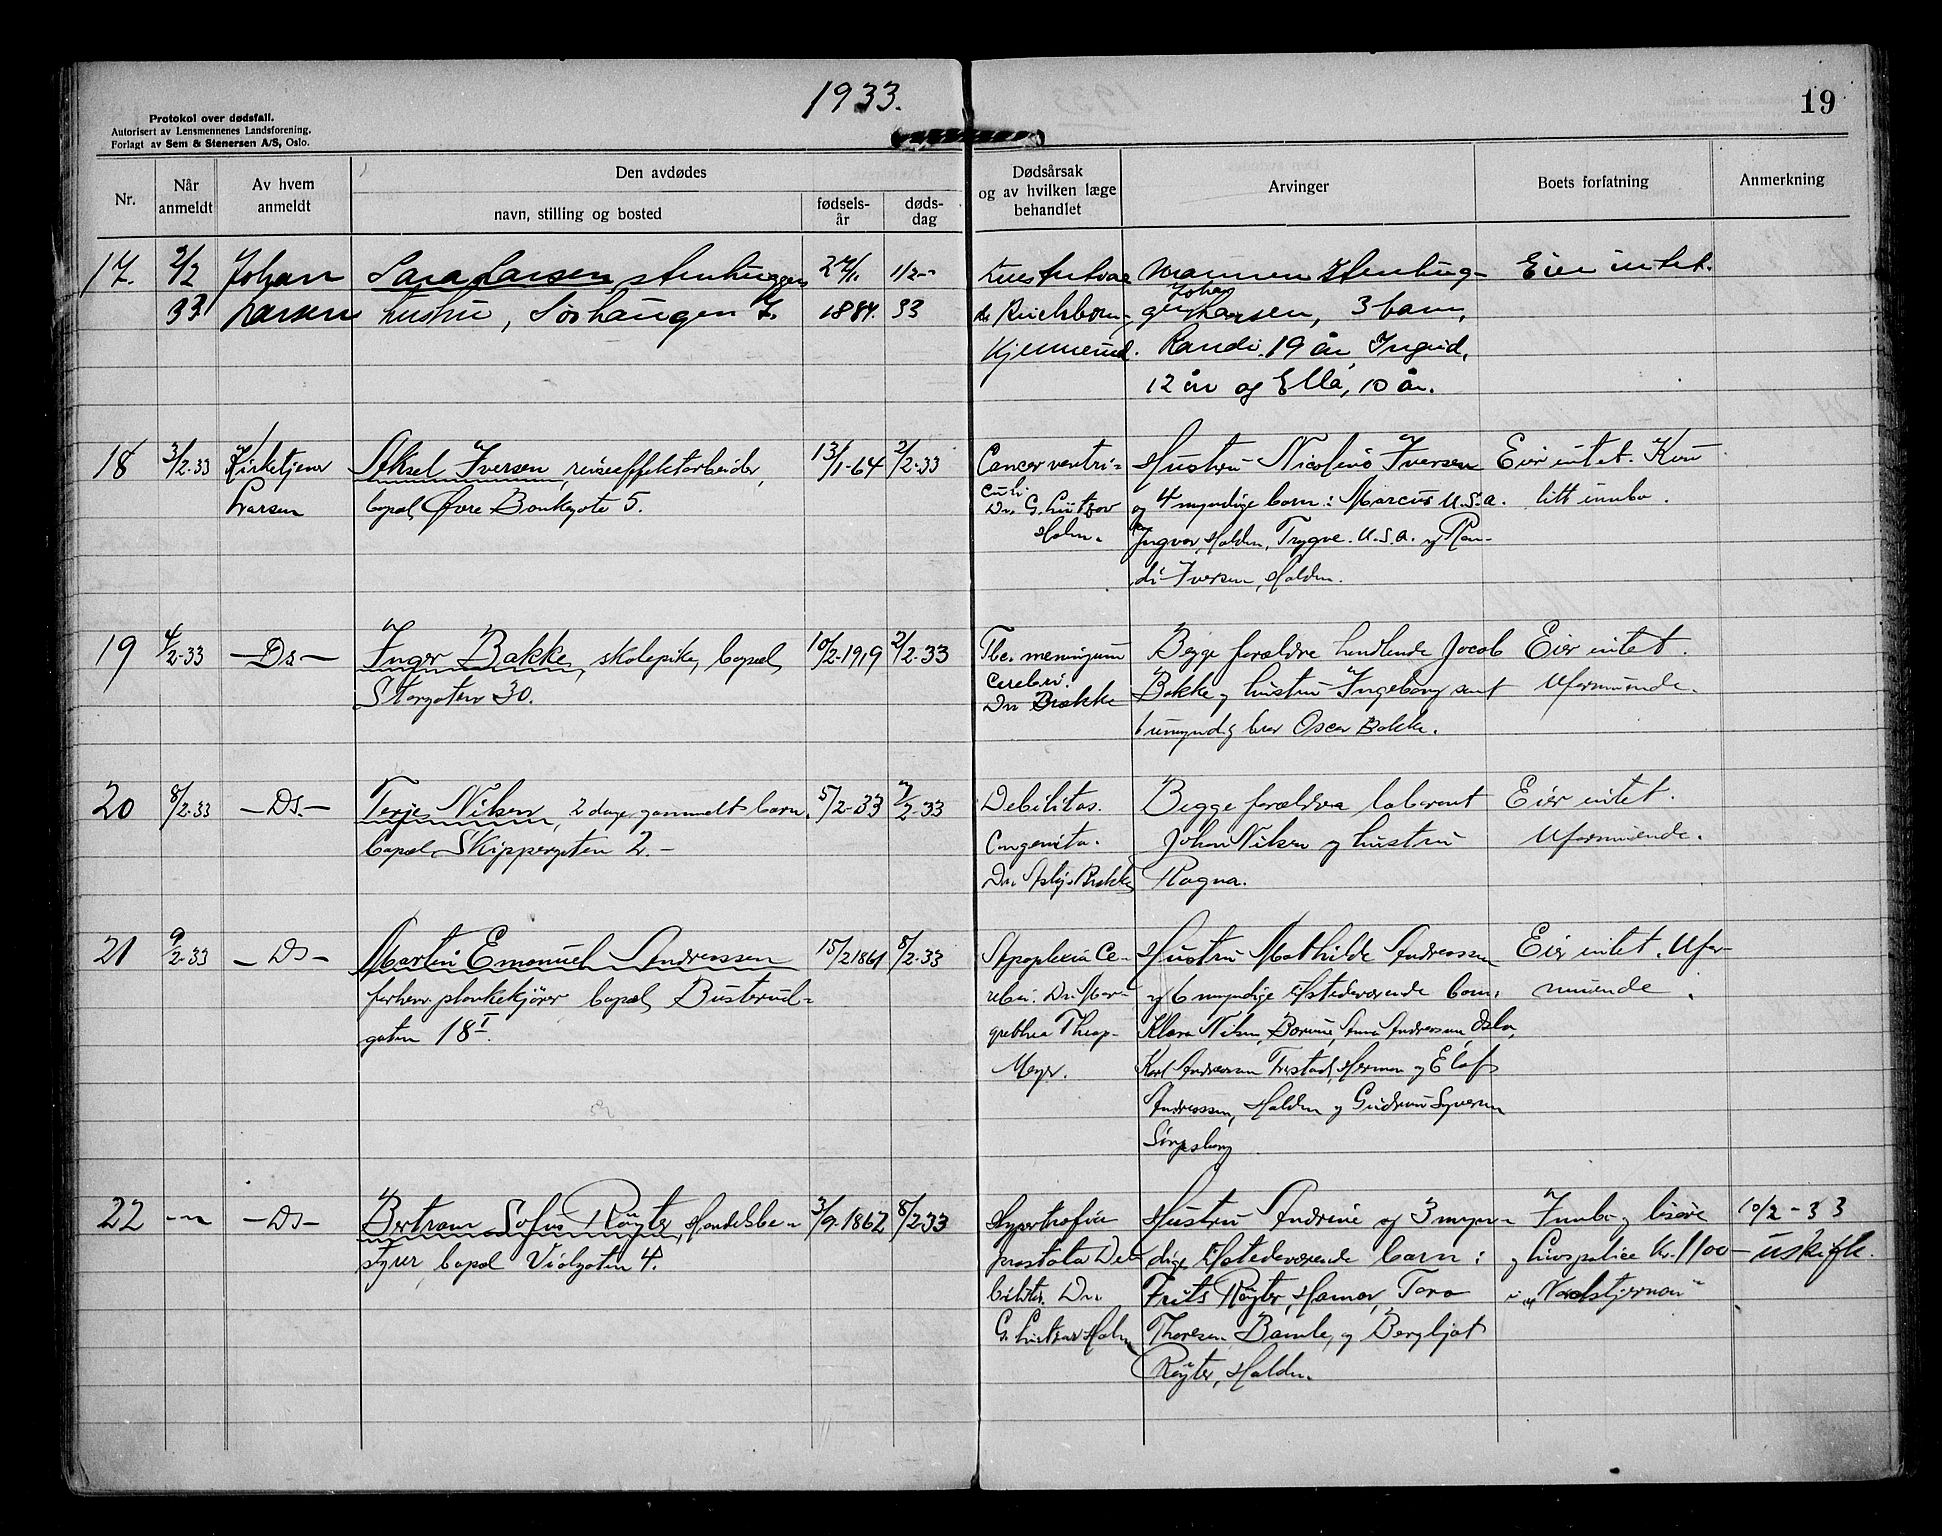 1933.
19
Protokol over dødsfall.
Autorisert av Lensmennenes Landsforening.
Forlagt av Sem & Stenersen A/S, Oslo.
Nr.
Når anmeldt
Av hvem anmeldt
Den avdødes
navn, stilling og bosted
fødsels-år
døds-dag
Dødsårsak og av hvilken læge behandlet
Arvinger
Boets forfatning
Anmerkning
17. 2/2 Johan Sara Larsen, stenhuggers 27/1. 1/2- Mannen Stenhug- Eier intet.
33 Larsen hustru, Sørhaugen 7. 1884. 33 Johan
ger Larsen, 3 barn,
Kjennerud. Randi 19 år Ingrid,
12 år og Ella, 10 år.
18 3/2-33 Kirketjener Aksel Iversen, reiseeffektarbeider, 13/1-64 2/2-33 Cancer ventri- Hustru Nicoline Iversen Eier intet. Kun
Larsen bopæl Øvre Bankegate 5. culi og 4 myndige barn: Marcus U.S.A. litt innbo.
Dr. G. Lützow
Holm. Ingvar, Halden, Trygve U.S.A. og Ran-
di Iversen, Halden.
19 4/2-33 - Ds - Inger Bakke, skolepike, bopæl 10/2-1919 2/2-33 Tbc. meningum Begge forældre handlende Jacob Eier intet.
Storgaten 30. cerebri. Bakke og hustru Ingeborg samt Uformuende.
Dr. Brække umyndig bror Oscar Bakke.
20 8/2-33 - Ds - Terje Nilsen, 2 dage gammelt barn. 5/2-33 7/2-33 Debilitas. Begge forældre laborant Eier intet.
bopæl Skippergaten 2.- Congenita. Johan Nilsen og hustru Uformuende.
Dr. Brække Ragna.
21 9/2-33 - Ds - Martin Emanuel Andreassen 15/2 1861 8/2-33 Apoplexia Ce- Hustru Mathilde Andreassen Eier intet. Ufor-
forhenv. plankekjører bopæl Busterud- rebri. Dr. Mar- og 6 myndige tilstedeværende barn: muende.
gaten 18 I. grethea Thaap- Klara Nilsen, Anna Andreassen, Oslo,
Meyer. Karl Andreassen Herman og Elof
Andreassen, Halden og Gudrun Syversen
Sarpsborg
22 -"- - Ds - Bertram Sofus Røyter, Handelsbe- 3/9-1862 8/2-33 Hypertrofia Hustru Andrine og 3 myn- Innbo og løsøre 10/2-33
styrer, bopæl Violgaten 4. prostata De- dige tilstedeværende barn: og livspolice Kr. 1100- uskifte.
bilitas. Dr. Frits Røyter, Hamar, Tora i "Nordstjernan"
G. Lützow Holm Thoresen Bamle, og Bergljot
Røyter, Halden.